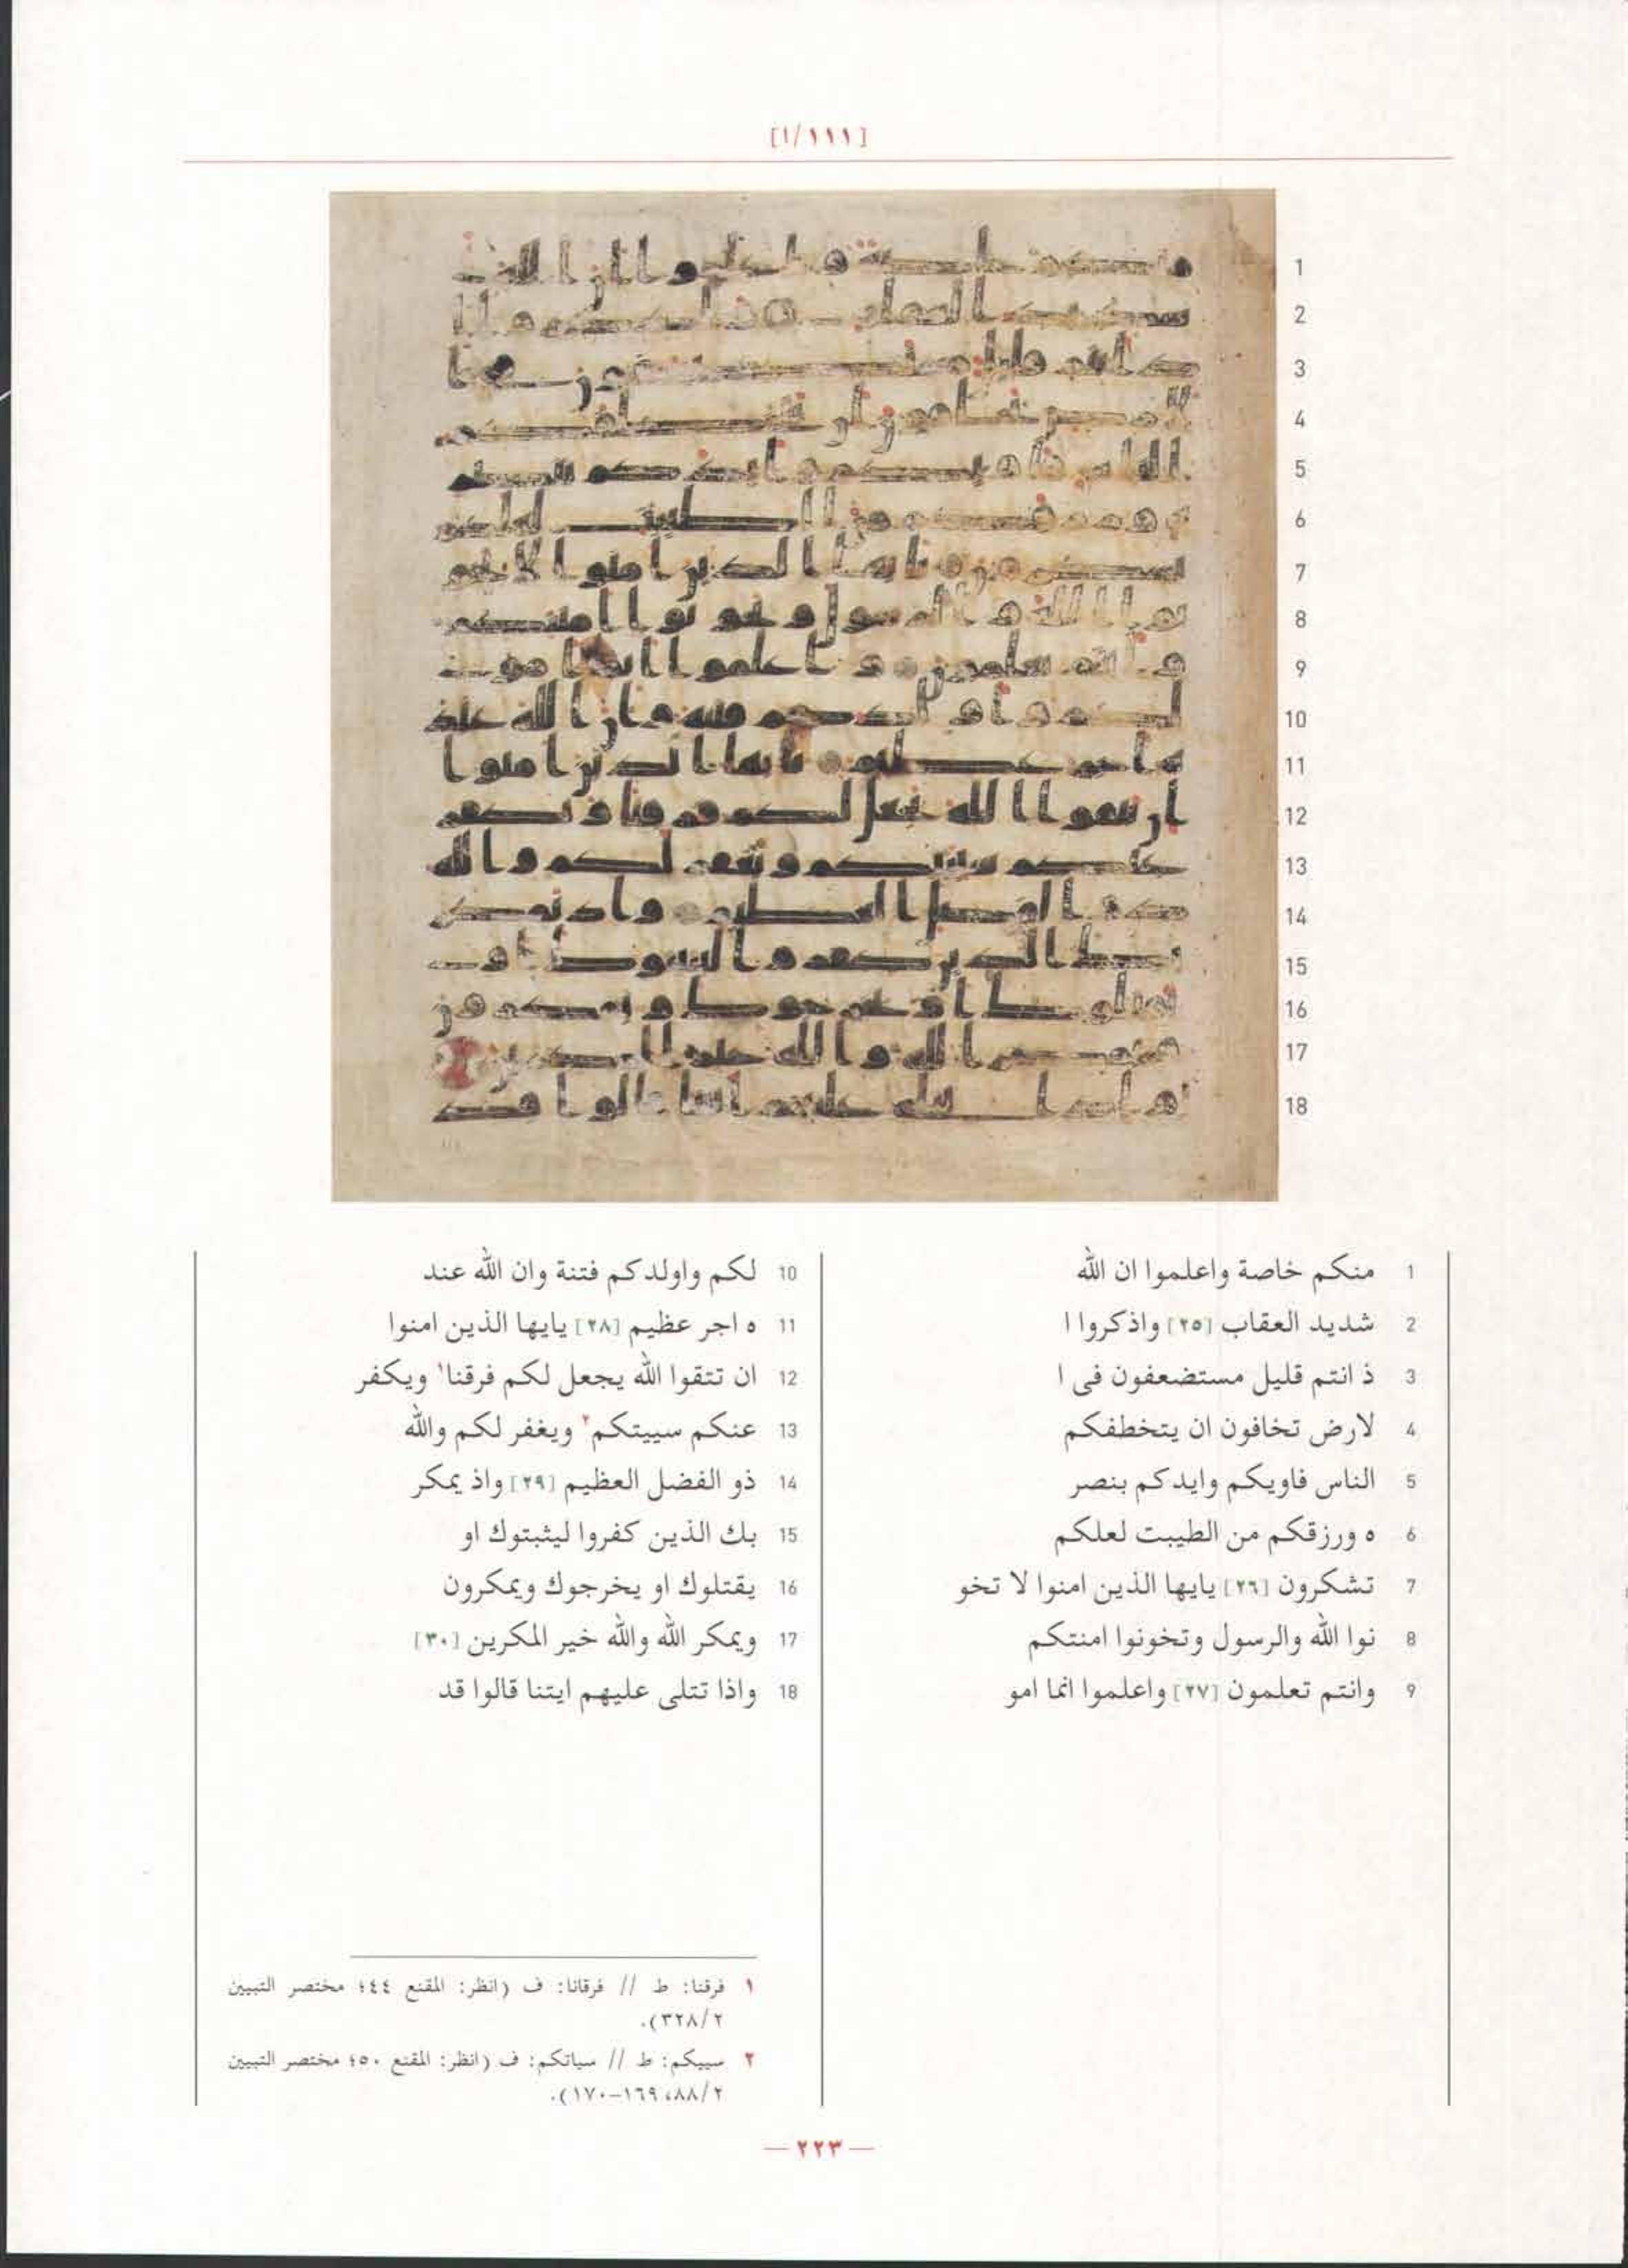 [١/١١١]
1 منكم خاصة واعلموا ان الله
2 شديد العقاب [٢٥] واذكروا ا
3 ذ انتم قليل مستضعفون فى ا
4 لارض تخافون ان يتخطفكم
5 الناس فاويكم وايدكم بنصر
6 ه ورزقكم من الطيبت لعلكم
7 تشكرون [٢٦] يايها الذين امنوا لا تخو
8 نوا الله والرسول وتخونوا امنتكم
9 وانتم تعلمون [٢٧] واعلموا انما امو
10 لكم واولدكم فتنة وان الله عند
11 ه اجر عظيم [٢٨] يايها الذين امنوا
12 ان تتقوا الله يجعل لكم فرقنا١ ويكفر
13 عنكم سييتكم٢ ويغفر لكم والله
14 ذو الفضل العظيم [٢٩] واذ يمكر
15 بك الذين كفروا ليثبتوك او
16 يقتلوك او يخرجوك ويمكرون
17 ويمكر الله والله خير المكرين [٣٠]
18 واذا تتلى عليهم ايتنا قالوا قد
١ فرقنا: ط // فرقانا: ف (انظر: المقنع ٤٤؛ مختصر التبيين
٣٢٨/٢).
٢ سييكم: ط // سياتكم: ف (انظر: المقنع ٥٠؛ مختصر التبيين
٨٨/٢، ١٦٩-١٧٠).
— ٢٢٣ —